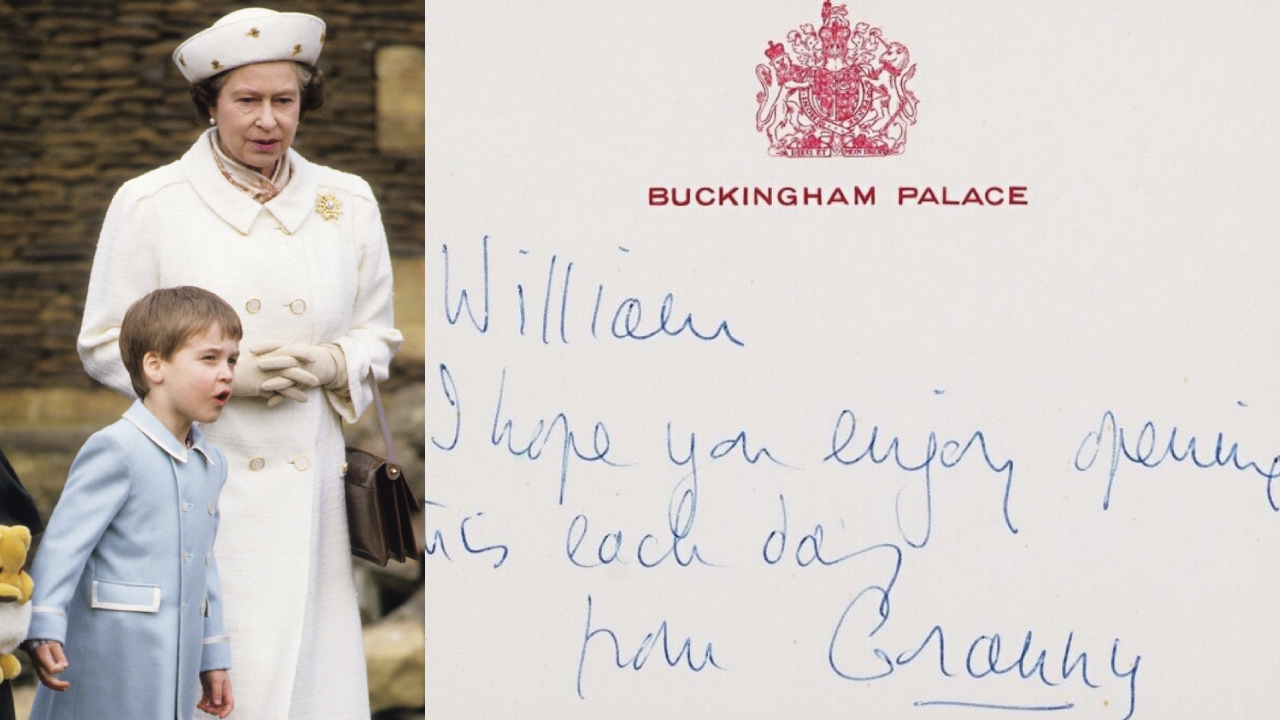 DIEU ET MON DROIT
BUCKINGHAM PALACE
William
I hope you enjoy opening
this each day
from Granny